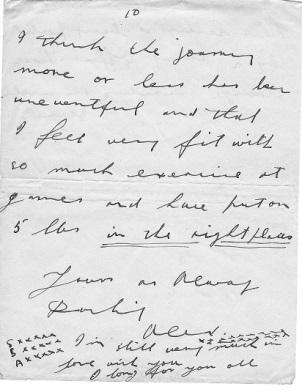 10
I think the journey
more or less has been
uneventful and that
I feel very fit with
so much exercise at
games and have put on
5 lbs in the right places
Yours as Always
Darling
Alex
S x x x x x
B x x x x x
A x x x x x
I'm still very much in
love with you
I long for you all